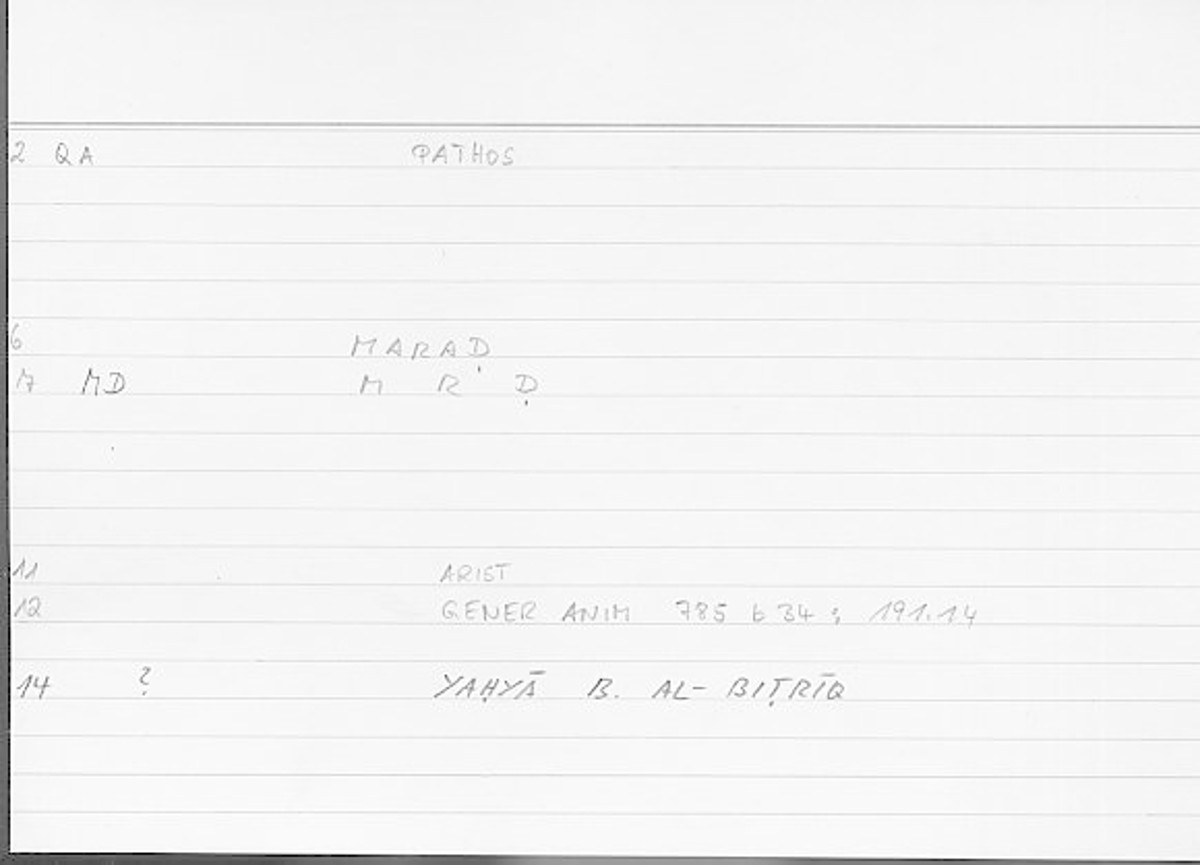 2 QA PATHOS
6 MARAḌ
7 MD M R Ḍ
11 ARIST
12 GENER ANIM 785 b 34 ; 191.14
14 ? YAḤYĀ B. AL-BIṬRĪQ